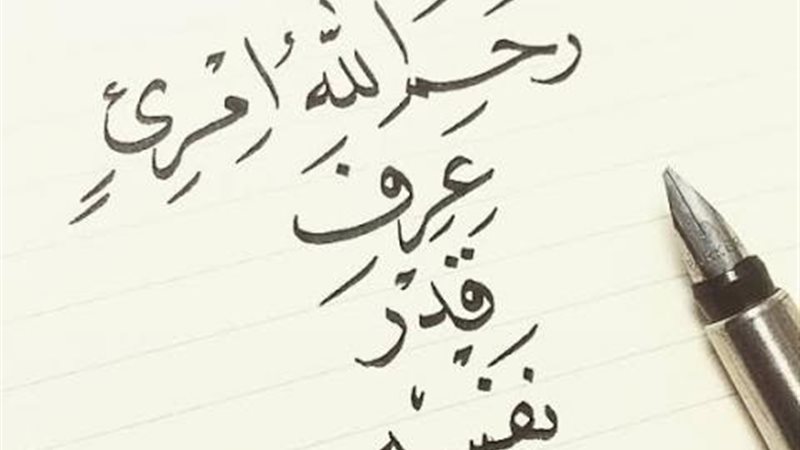 رَحِمَ اللّهُ اِمْرِئٍ
عَرِفَ
قِدْر
نَفْسه